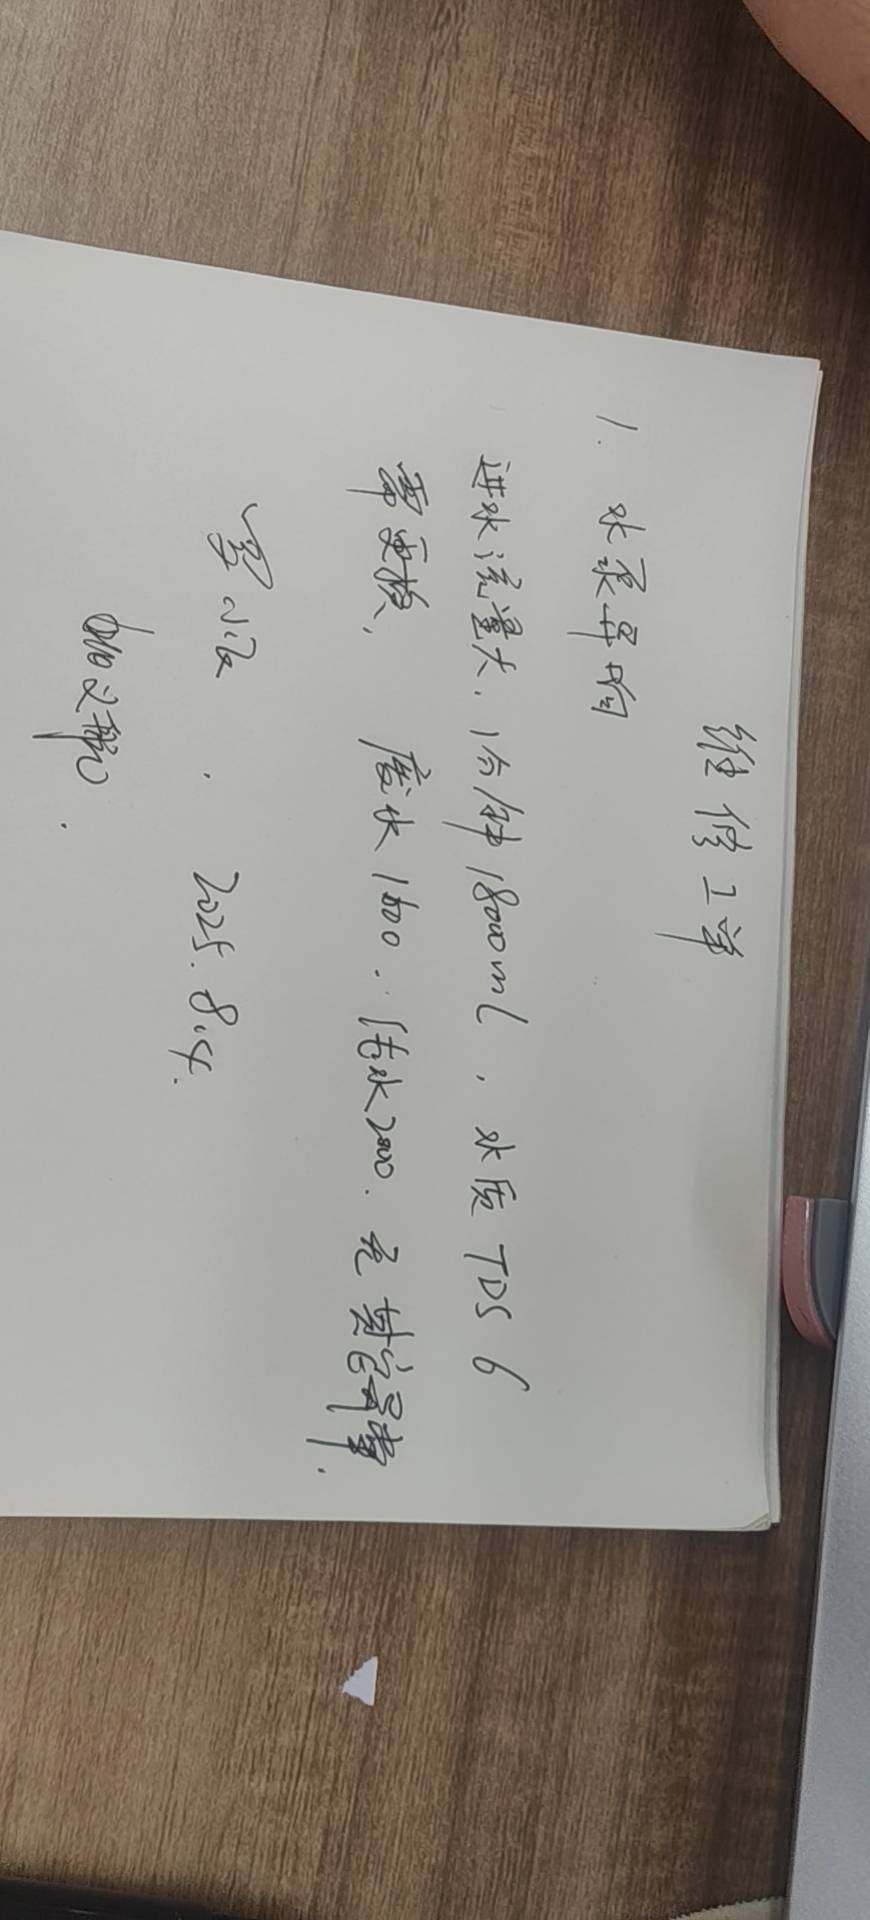 维修工单
1. 水泵异响
进水流量大，1分钟1800ml，水质TDS 6
需更换，废水1600．洁水2000．无其它异常．
2025.8.4.